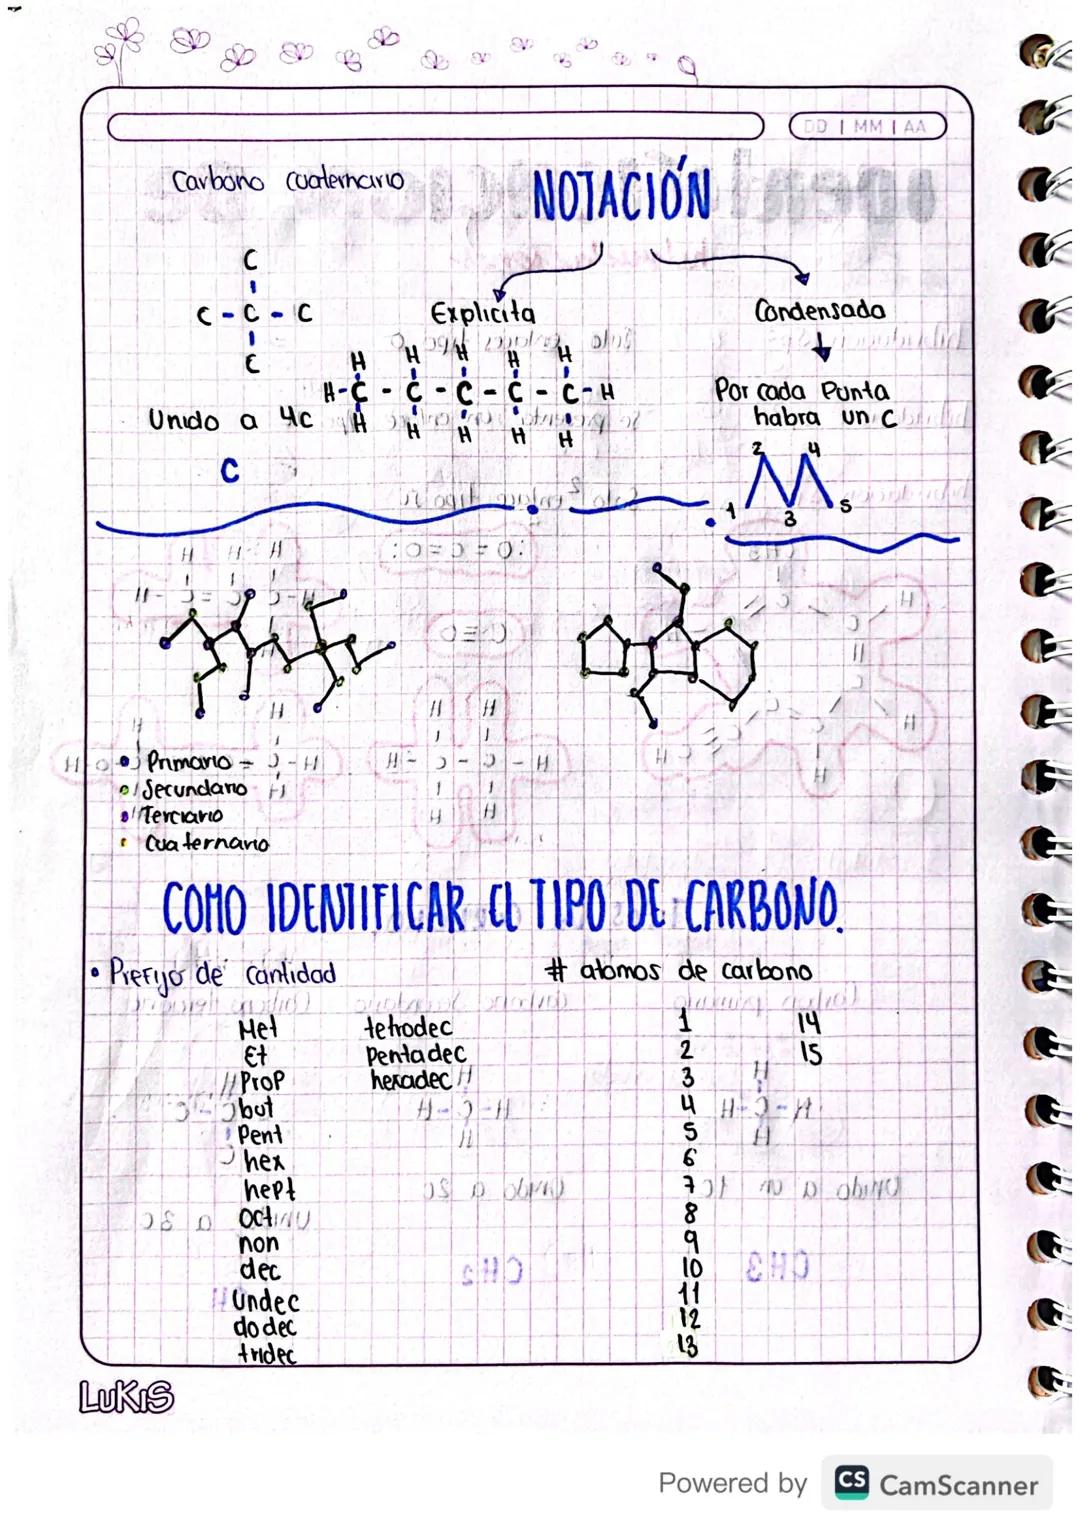 DD | MM | AA
Carbono cuaternario
NOTACIÓN
C
C - C - C
C
Unido a 4C
C
Explicita
H H H H H
H - C - C - C - C - C - H
H H H H H
Condensada
Por cada Punta
habra un C
2 4
1 3 5
Primario
Secundario
Terciario
Cuaternario
COMO IDENTIFICAR EL TIPO DE CARBONO.
• Prefijo de cantidad
# atomos de carbono
Met tetradec 1 14
Et Pentadec 2 15
Prop hexadec 3
but 4
Pent 5
hex 6
hept 7
Oct 8
non 9
dec 10
Undec 11
dodec 12
tridec 13
LUKIS
Powered by CS CamScanner